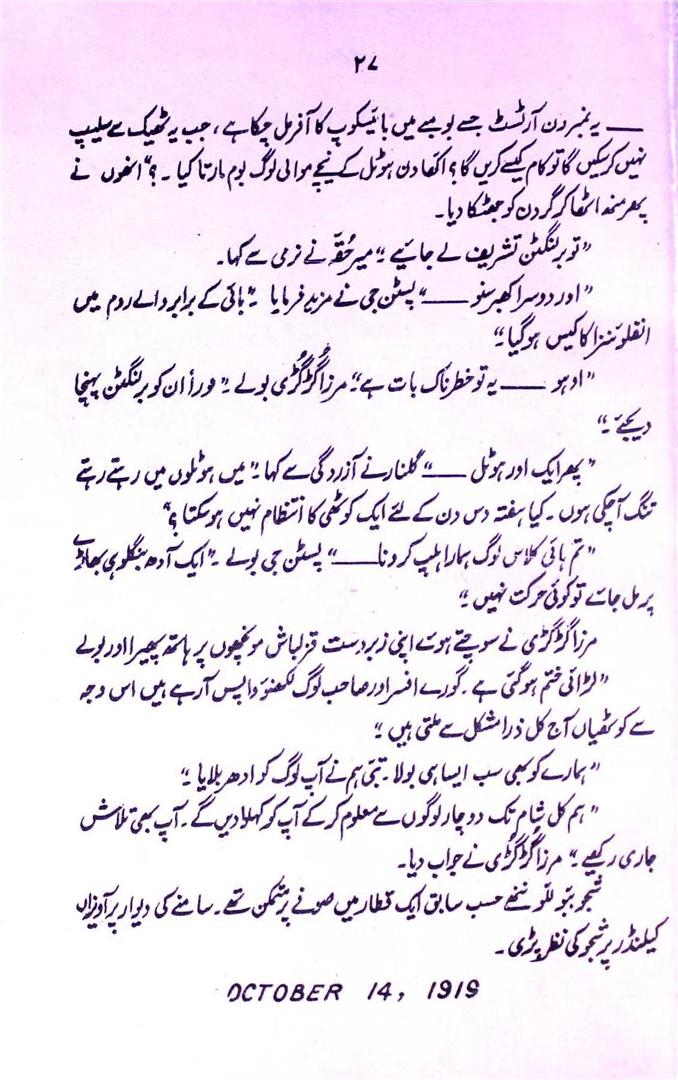 ۲۷
— یہ نمبر ون آرٹسٹ جسے بومبے میں بائیسکوپ کا آفر مل چکا ہے، جب یہ ٹھیک سے سلیپ
نہیں کر سکیں گا تو کام کیسے کریں گا؟ اکھا دن ہوٹل کے نیچے موالی لوگ بوم مارتا کیا ۔؟“ انھوں نے
پھر منھ اٹھا کر گردن کو جھٹکا دیا۔
”تو برلنگٹن تشریف لے جائیے“ میر حُقہ نے نرمی سے کہا۔
”اور دوسرا کھبر سنو —“ پسٹن جی نے مزید فرمایا ”بائی کے برابر والے روم میں
انفلوئنزا کا کیس ہو گیا“
”اوہو — یہ تو خطرناک بات ہے“۔ مرزا گڑگڑی بولے ۔ ”فوراً ان کو برلنگٹن پہنچا
دیجئے ۔“
”پھر ایک اور ہوٹل —“ گلنار نے آزردگی سے کہا۔ ”میں ہوٹلوں میں رہتے رہتے
تنگ آچکی ہوں ۔ کیا ہفتہ دس دن کے لئے ایک کوٹھی کا انتظام نہیں ہوسکتا؟“
”تم ہائی کلاس لوگ ہمارا ہلپ کرونا —“ پسٹن جی بولے ۔ ”ایک آدھ بنگلو ہی بھاڑے
پر مل جائے تو کوئی حرکت نہیں“
مرزا گڑگڑی نے سوچتے ہوئے اپنی زبردست قزلباش مونچھوں پر ہاتھ پھیرا اور بولے
”لڑائی ختم ہو گئی ہے ۔ گورے افسر اور صاحب لوگ لکھنؤ واپس آرہے ہیں اس وجہ
سے کوٹھیاں آج کل ذرا مشکل سے ملتی ہیں“
”ہمارے کو بھی سب ایسا ہی بولا۔ تبّی ہم نے آپ لوگ کو ادھر بلایا“
”ہم کل شام تک دو چار لوگوں سے معلوم کر کے آپ کو کہلوا دیں گے ۔ آپ بھی تلاش
جاری رکھیے“ مرزا گڑگڑی نے جواب دیا۔
شجو ببّو للّو ننھے حسب سابق ایک قطار میں صوفے پر متمکن تھے ۔ سامنے کی دیوار پر آویزاں
کیلنڈر پر شجو کی نظر پڑی۔
OCTOBER 14, 1919